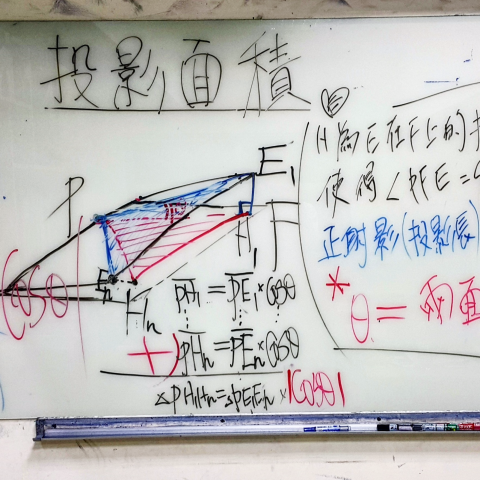 投影面積
H為E在F上的
使得∠PFE=
正射影(投影長)
* θ=兩面
P
E₁
F
H₁
Eₙ
Hₙ
Cosθ
PH₁=PE₁×Cosθ
⋮ ⋮
+) PHₙ=PEₙ×Cosθ
△PH₁Hₙ=△PE₁Eₙ×|Cosθ|